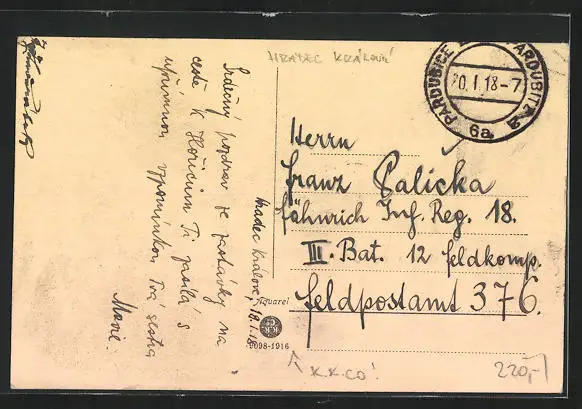 HRADEC KRÁLOVÉ
PARDUBICE PARDUBITZ
20.I.18-7
6a
Herrn
Franz Palička
Fähnrich Inf. Reg. 18.
III. Bat. 12 Feldkomp.
Feldpostamt 376.
Hradec Králové, 18.I.18
Srdečný pozdrav ze zastávky na
cestě k Hořicům Ti posílá s
upřímnou vzpomínkou Tvá sestra
Marie.
Aquarel
9098-1916
K.K.CO!
220,-